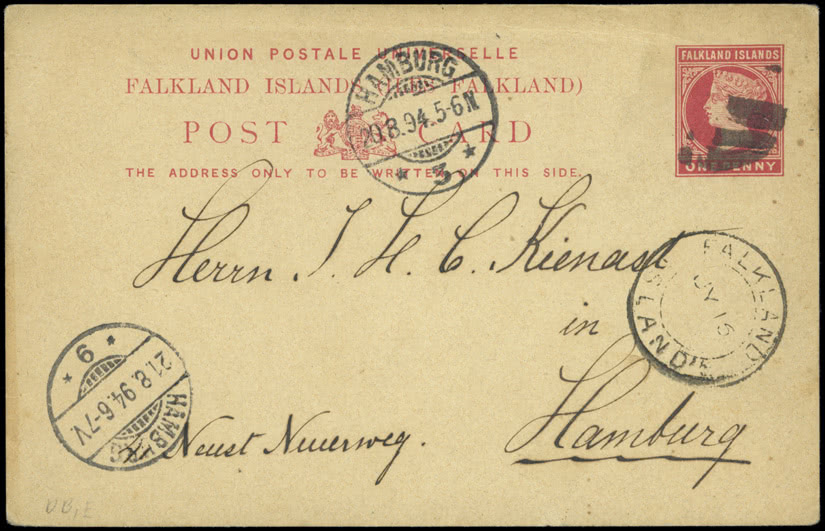 UNION POSTALE UNIVERSELLE
FALKLAND ISLANDS (ILES FALKLAND)
POST CARD
THE ADDRESS ONLY TO BE WRITTEN ON THIS SIDE.
FALKLAND ISLANDS
ONE PENNY
HAMBURG
20.8.94.5-6N
* 3 *
Herrn J. H. C. Kienast
in
Hamburg
Neust
FALKLAND ISLANDS
JY 16
* 9 *
21.8.94.6-7V
HAMBURG